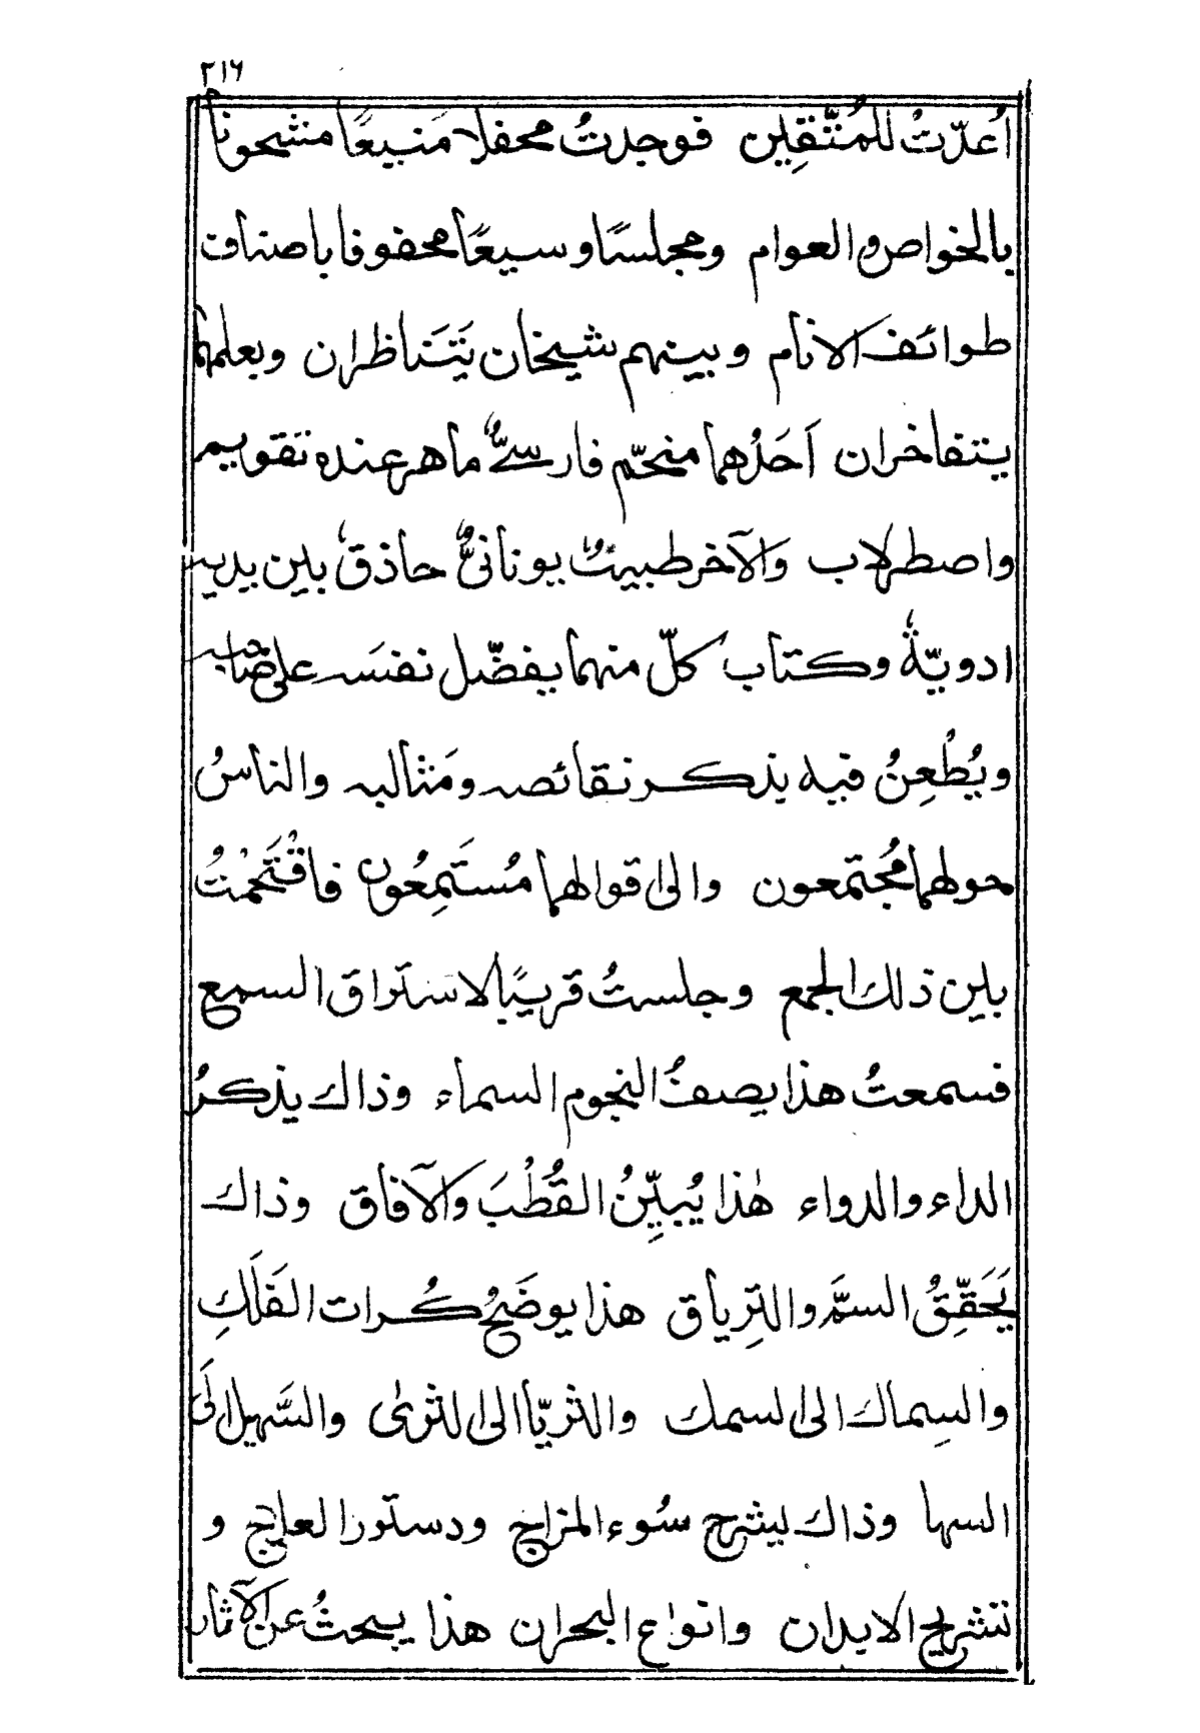 ٣١٦
اُعدّتْ للمُتّقِين فوجدتُ محفلا مَنيعًا منشحونا
بالخواص والعوام ومجلسًا وسيعًا محفوفا باصناف
طوائف الانام وبينهم شيخان يَتَناظران وبعلمهما
يتفاخران اَحَدُهما منجّم فارسيٌّ ماهر عنده تقويم
واصطرلاب والآخر طبيبٌ يونانيٌّ حاذقٌ بين يديه
ادويّةٌ وكتاب كلّ منهما يفضّل نفسَه على صاحبه
ويُطْعِنُ فيه يذكر نقائصه ومَثالبه والناسُ
حولهما مُجتمعون والى اقوالهما مُستَمِعُون فاقْتَحَمْتُ
بين ذلك الجمع وجلستُ قريبًا لاستراق السمع
فسمعتُ هذا يصفُ النجوم السماء وذاك يذكرُ
الداء والدواء هٰذا يُبيِّنُ القُطْبَ والآفاق وذاك
يَحَقِّقُ السمَّ والتِرياق هذا يوضَحُ كُرات الفَلَكِ
والسِماك الى السمك والثريّا الى الثرىٰ والسَّهيل الَى
السها وذاك ليشرح سُوء المزاج ودستور العلاج و
تشريح الابدان وانواع البحران هذا يبحثُ عن الآثار